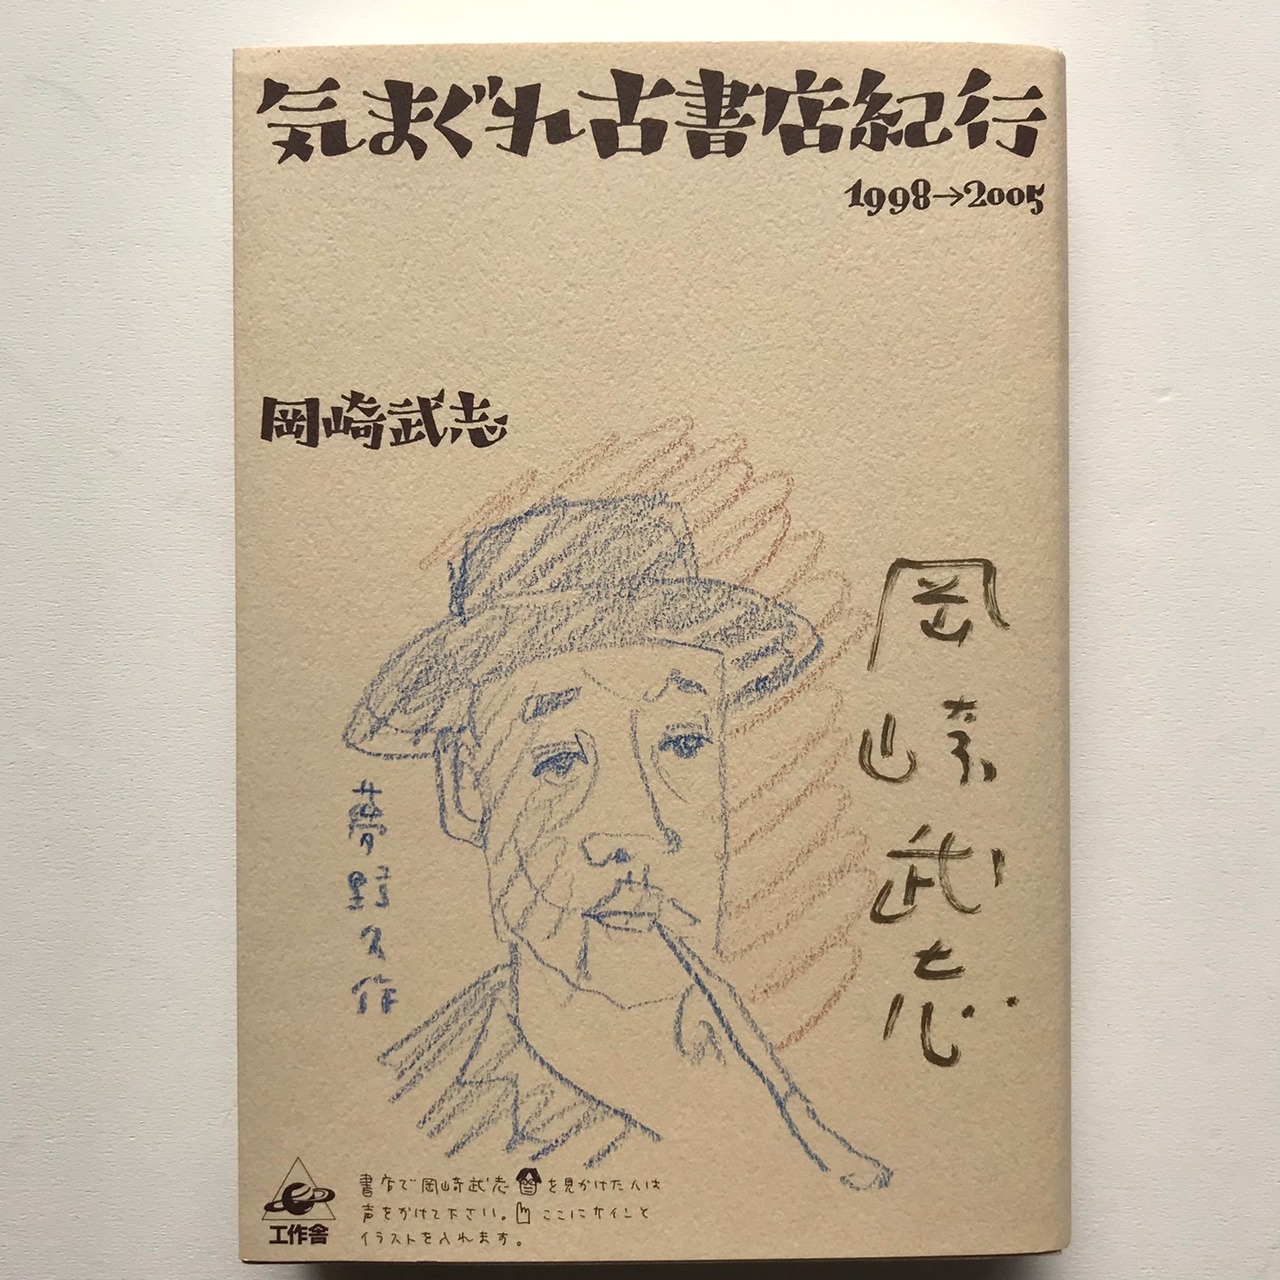 気まぐれ古書店紀行
1998→2005
岡崎武志
岡崎武志
夢野久作
工作舎
書店で岡崎武志を見かけた人は
声をかけて下さい。ここにサインと
イラストを入れます。